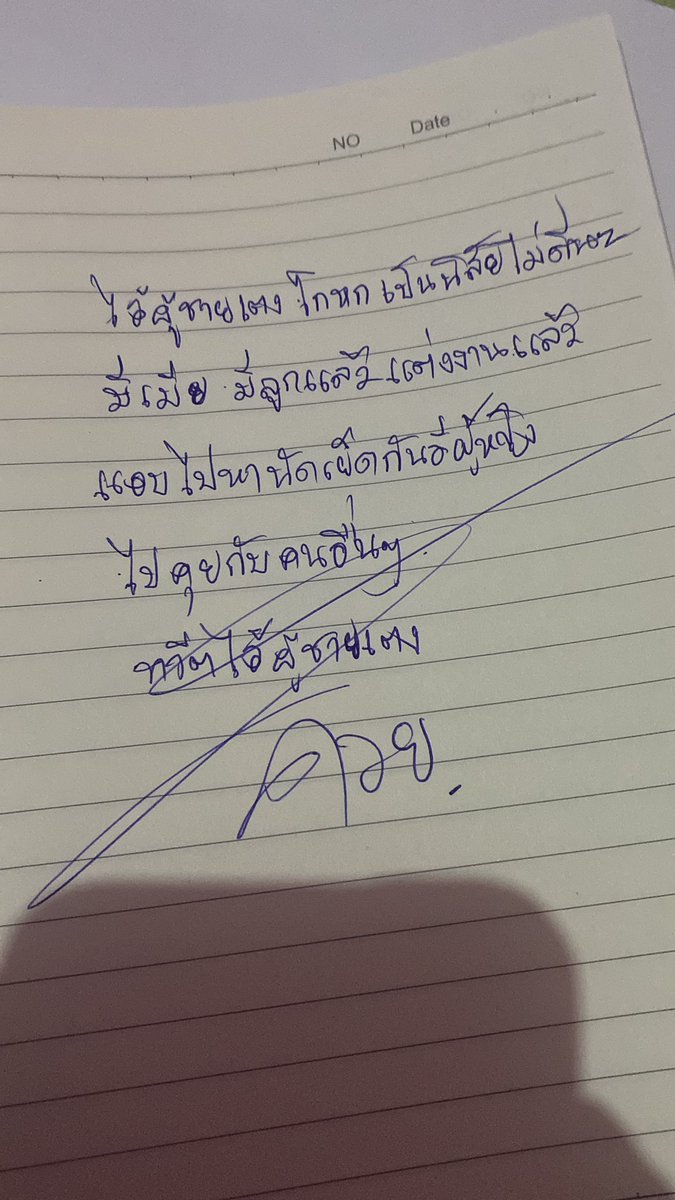 NO Date
ไอ้ผู้ชายเตง โกหก เป็นนิสัยไม่ดีนะ
มีเมีย มีลูกแล้ว แต่งงานแล้ว
แอบไปหานัดเย็ดกันอีผู้หญิง
ไปคุยกับคนอื่นๆ
ทวีต ไอ้ผู้ชายเตง
ควย.